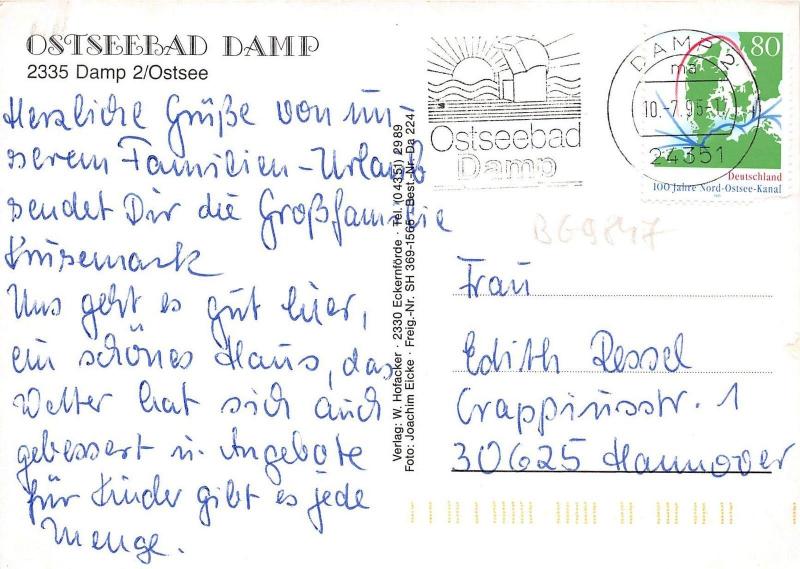 OSTSEEBAD DAMP
2335 Damp 2/Ostsee
Herzliche Grüße von un-
serem Familien-Urlaub
sendet Dir die Großfamilie
Krusemark
Uns geht es gut hier,
ein schönes Haus, das
Wetter hat sich auch
gebessert u. Angebote
für Kinder gibt es jede
Menge.
Verlag: W. Hofacker · 2330 Eckernförde · Tel. (0 43 51) 29 89
Foto: Joachim Eicke · Freig.-Nr. SH 369-1565 · Best.-Nr. Da 224
Ostseebad
Damp
DAMP 2
ma
10.-7.95-1
24351
80
Deutschland
100 Jahre Nord-Ostsee-Kanal
BG9847
Frau
Edith Ressel
Crappiusstr. 1
30625 Hannover